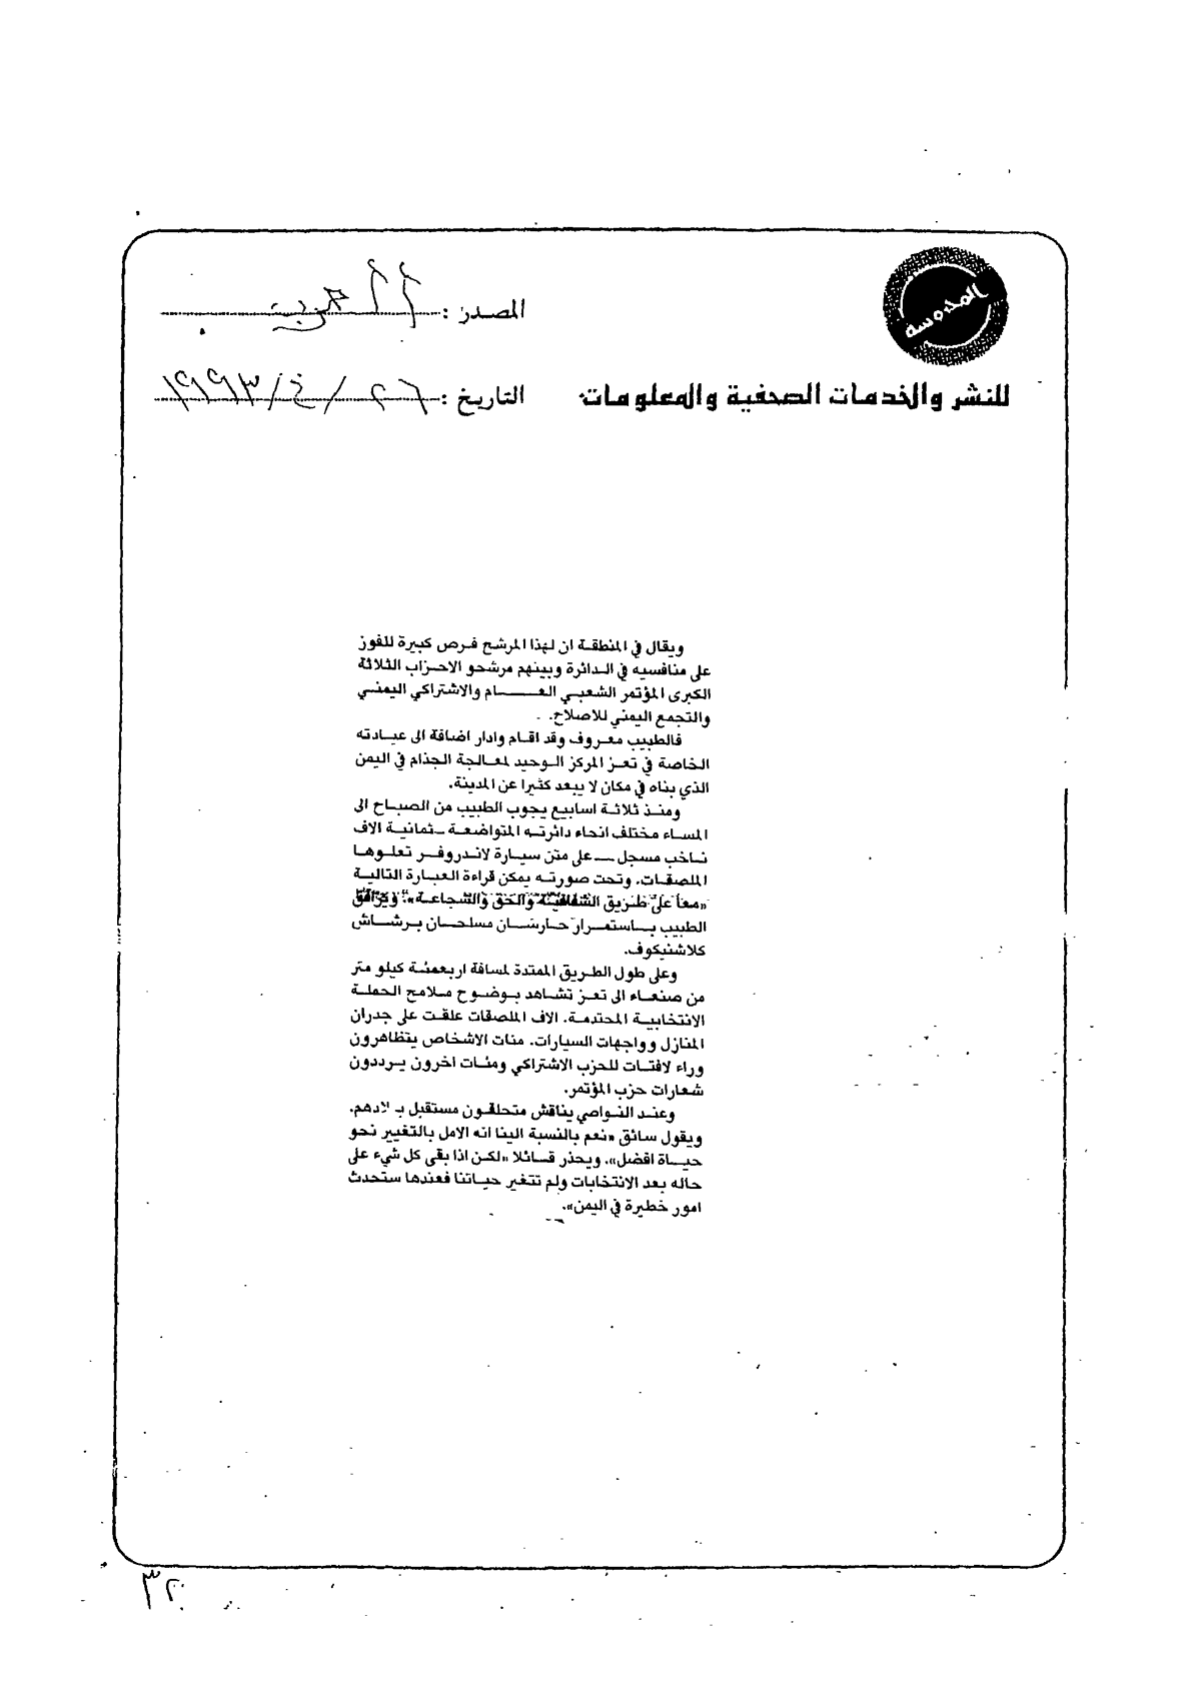 المحروسة
المصدر :
للنشر والخدمات الصحفية والمعلومات
التاريخ : ٢٦ / ٤ / ١٩٩٣
ويقال في المنطقة ان لهذا المرشح فرص كبيرة للفوز
على منافسيه في الدائرة وبينهم مرشحو الاحزاب الثلاثة
الكبرى المؤتمر الشعبي العام والاشتراكي اليمني
والتجمع اليمني للاصلاح.
فالطبيب معروف وقد اقام وادار اضافة الى عيادته
الخاصة في تعز المركز الوحيد لمعالجة الجذام في اليمن
الذي بناه في مكان لا يبعد كثيرا عن المدينة.
ومنذ ثلاثة اسابيع يجوب الطبيب من الصباح الى
المساء مختلف انحاء دائرته المتواضعة – ثمانية الاف
ناخب مسجل – على متن سيارة لاندروفر تعلوها
الملصقات. وتحت صورته يمكن قراءة العبارة التالية
«معا على طريق الشفافية والحق والشجاعة». ويرافق
الطبيب باستمرار حارسان مسلحان برشاش
كلاشنيكوف.
وعلى طول الطريق الممتدة لمسافة اربعمئة كيلو متر
من صنعاء الى تعز تشاهد بوضوح ملامح الحملة
الانتخابية المحتدمة. الاف الملصقات علقت على جدران
المنازل وواجهات السيارات. مئات الاشخاص يتظاهرون
وراء لافتات للحزب الاشتراكي ومئات اخرون يرددون
شعارات حزب المؤتمر.
وعند النواصي يناقش متحلقون مستقبل بلادهم.
ويقول سائق «نعم بالنسبة الينا انه الامل بالتغيير نحو
حياة افضل». ويحذر قائلا «لكن اذا بقى كل شيء على
حاله بعد الانتخابات ولم تتغير حياتنا فعندها ستحدث
امور خطيرة في اليمن».
٣٢